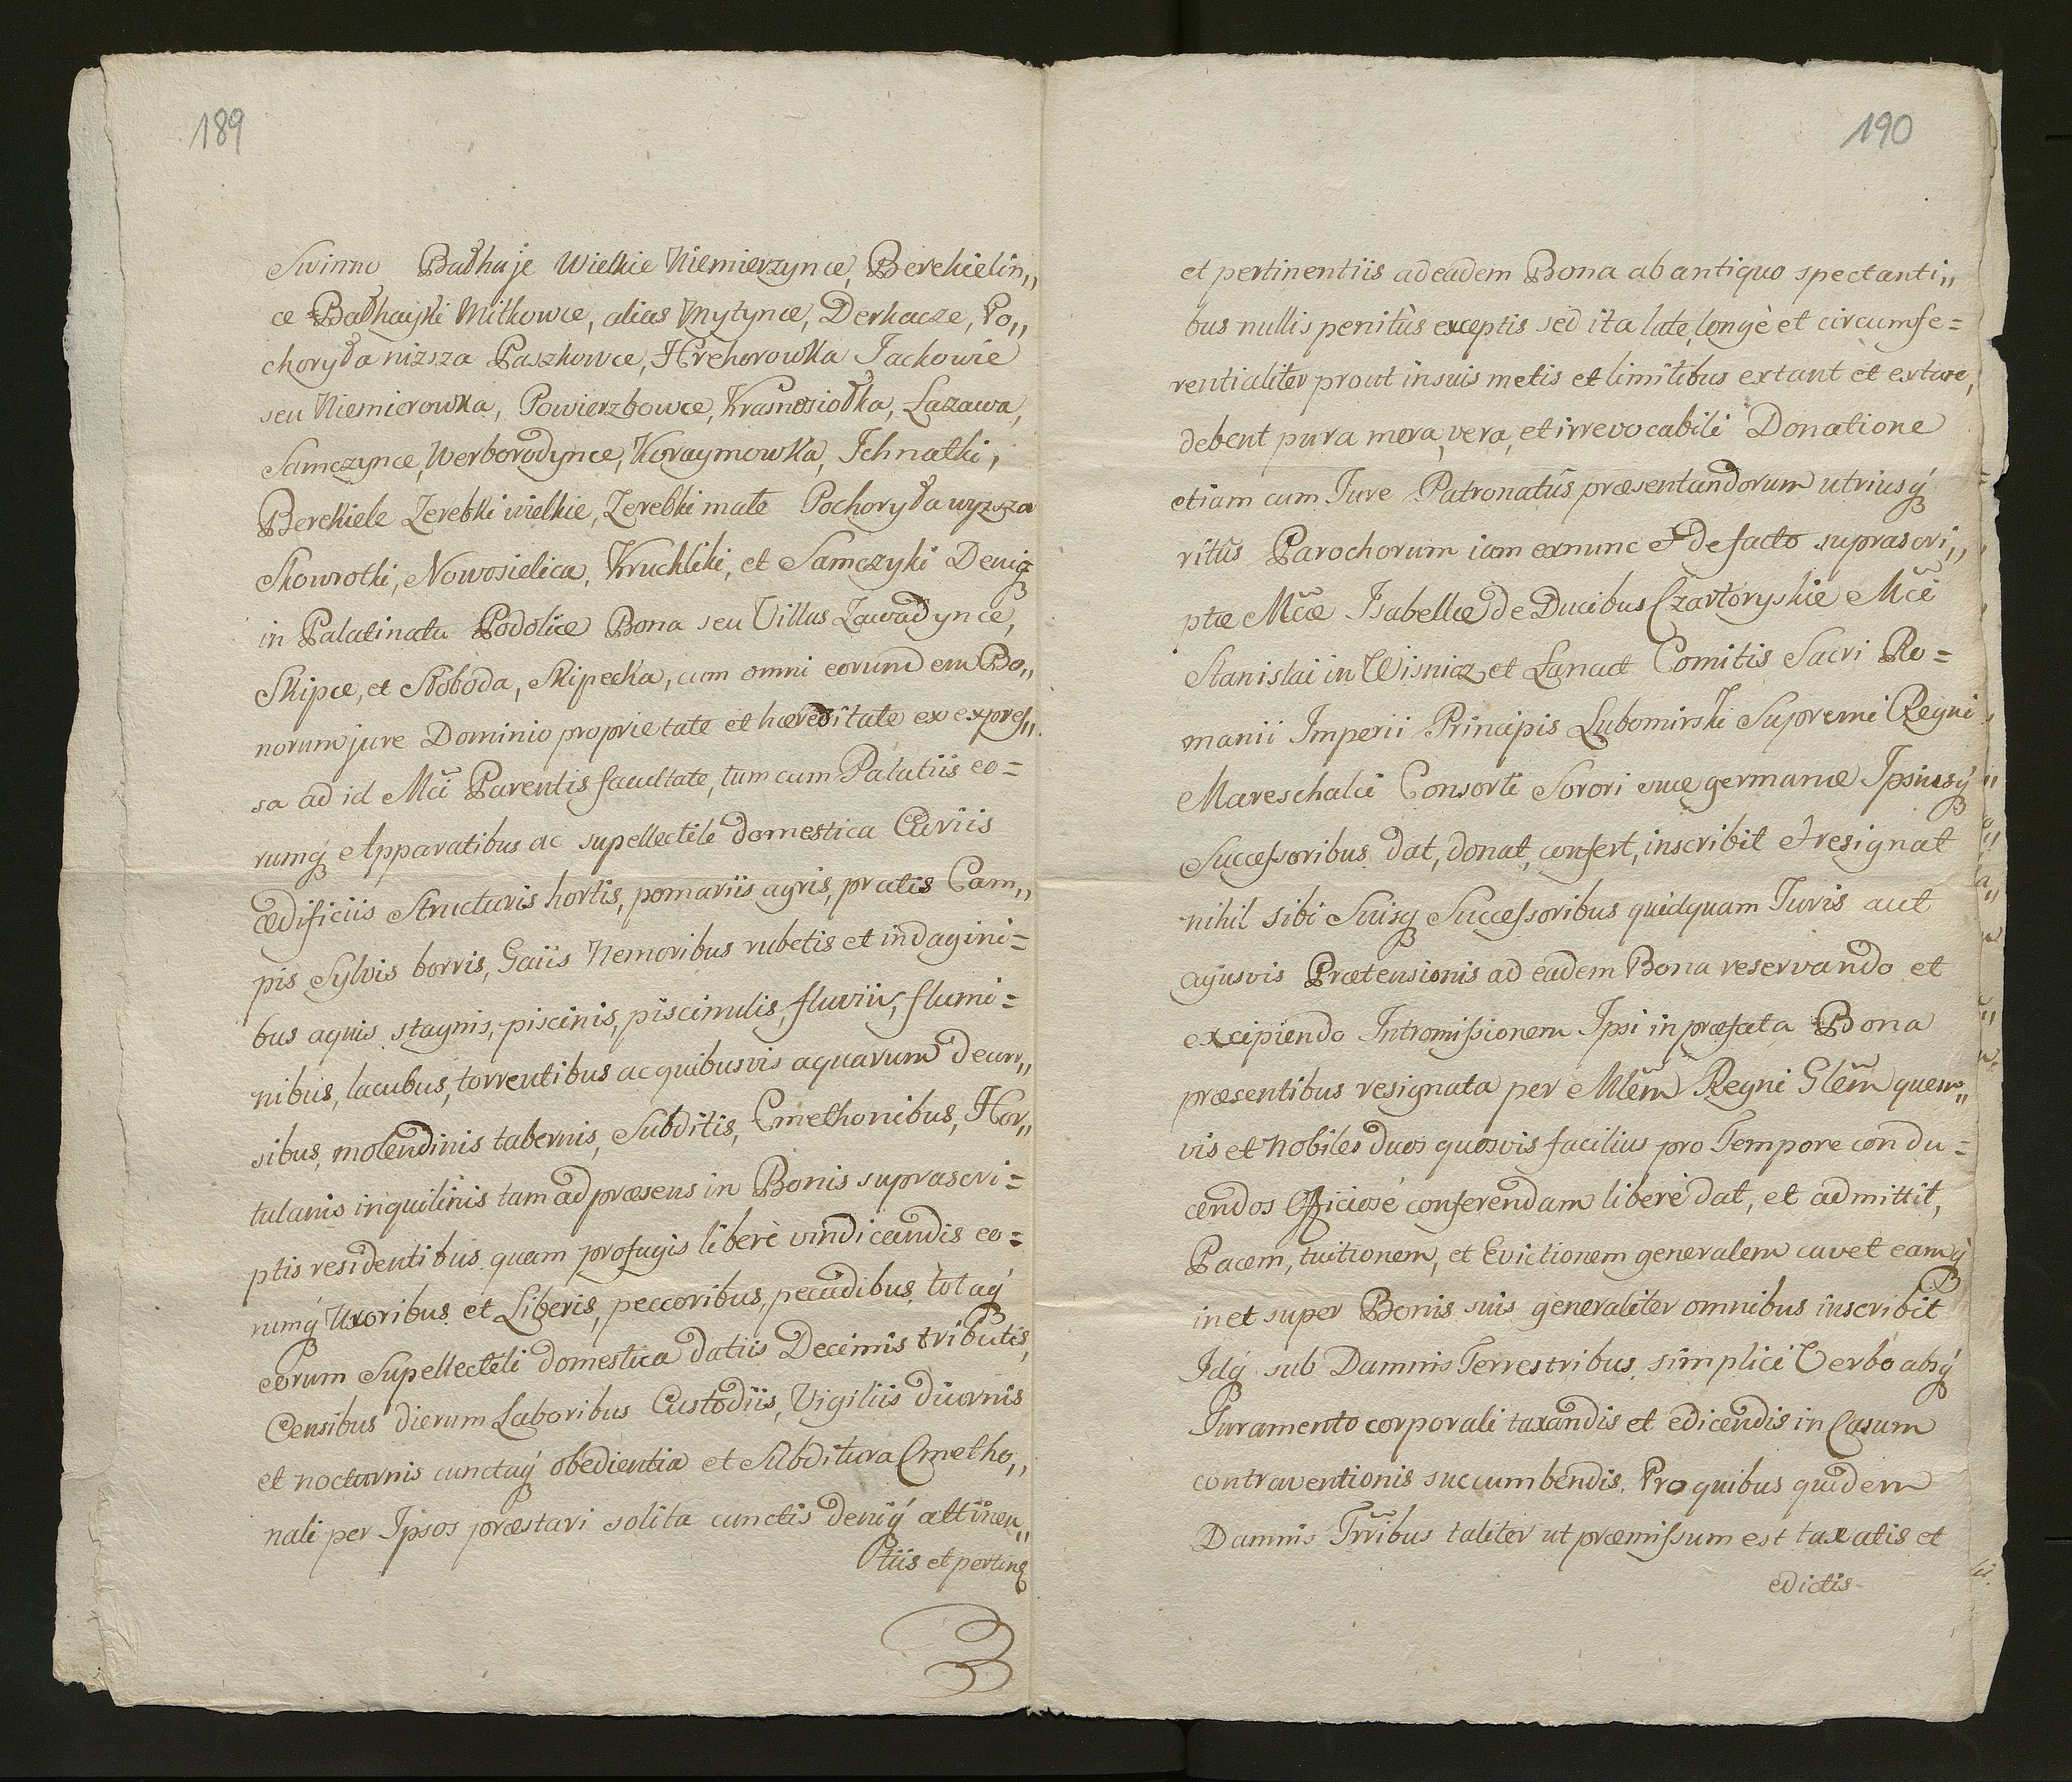 189
Swinno Bałhaje Wielkie Niemierzynce, Berehielin„
ce Bałhaijki Mitkowce, alias Mytynce, Derkacze, Po„
choryła nizsza Paszkowce, Hrehorowka Jackowie
seu Niemierowka, Powierzbowce, Krasnosiołka, Lazawa,
Samczynce, Werborodynce, Koraymowka, Jchnatki,
Berehiele Zerebki wielkie, Zerebki małe Pochoryła wyzsza
Skowrotki, Nowosielica, Kruchliki, et Samczyki Deniq
in Palatinatu Podoliæ Bona seu Villas Zawadynce,
Skipce, et Słoboda, Skipecka, cum omni eorundem Bo„
norum jure Dominio proprietate et hæreditate ex expres„
sa ad id Mci Parentis facultate, tum cum Palatiis eo=
rumq Apparatibus ac supellectile domestica Curiis
ædificiis Structuris hortis, pomariis agris, pratis Cam„
pis Sylvis borris, Gaiis Nemoribus rubetis et indagini=
bus aquis stagnis, piscinis, piscinulis, fluviis, flumi=
nibus, lacubus, torrentibus ac quibusvis aquarum decur„
sibus, molendinis tabernis, Subditis, Cmethonibus, Hor„
tulanis inquilinis tam ad præsens in Bonis suprascri=
ptis residentibus quam profugis liberè vindicandis eo=
rumq Uxoribus et Liberis, peccoribus, pecudibus, totaq
eorum Supellectili domestica datiis Decimis tributis,
Censibus dierum Laboribus Custodiis, Vigiliis diurnis
et nocturnis cunctaq obedientia et Subditura Cmetho„
nali per Ipsos præstari solita cunctis deniq attinen„
tiis et pertinq
190
et pertinentiis ad eadem Bona ab antiquo spectanti„
bus nullis penitùs exceptis sed ita late, longè et circumfe=
rentialiter prout in suis metis et limitibus extant et extare,
debent pura mera, vera, et irrevocabili Donatione
etiam cum Jure Patronatûs præsentandorum utriusq
ritûs Parochorum iam exnunc et de facto suprascri„
ptæ Mcæ Isabellæ de Ducibus Czartoryskie Mci
Stanislai in Wisnicz et Lancut Comitis Sacri Ro=
manii Imperii Principis Lubomirski Supremi Regni
Mareschalci Consorti Sorori suæ germanæ Ipsiusq
Successoribus dat, donat, confert, inscribit et resignat
nihil sibi Suisq Successoribus quidquam Juris aut
cujusvis Prætensionis ad eadem Bona reservando et
excipiendo Intromissionem Ipsi in præfata Bona
præsentibus resignata per Mlem Regni Glem quem„
vis et nobiles duos quosvis facilius pro Tempore condu=
cendos Officiosè conferendam liberè dat, et admittit,
Pacem, tuitionem, et Evictionem generalem cavet eamq
in et super Bonis suis generaliter omnibus inscribit
Idq sub Damnis Terrestribus, simplici Verbo absq
Juramento corporali taxandis et edicendis in Casum
contraventionis succumbendis. Pro quibus quidem
Damnis Trribus taliter ut præmissum est taxatis et
edictis